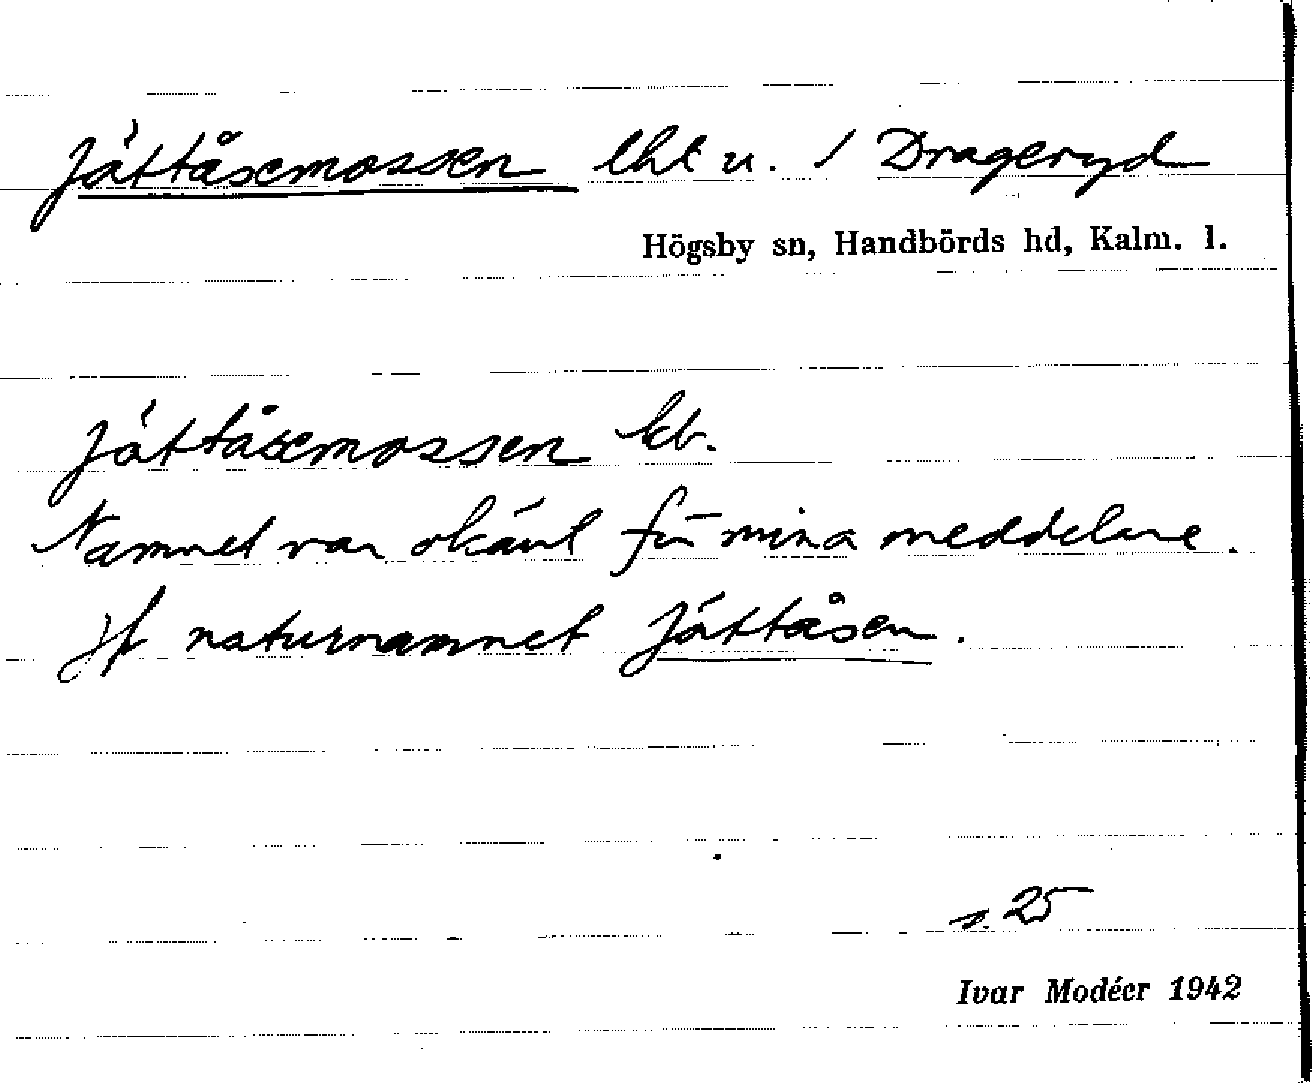 Jättåsemossen lht u. / Drageryd
Högsby sn, Handbörds hd, Kalm. l.
Jättåsemossen kb.
Namnet var okänt för mina meddelare.
Jf naturnamnet Jättåsen.
s. 25
Ivar Modéer 1942